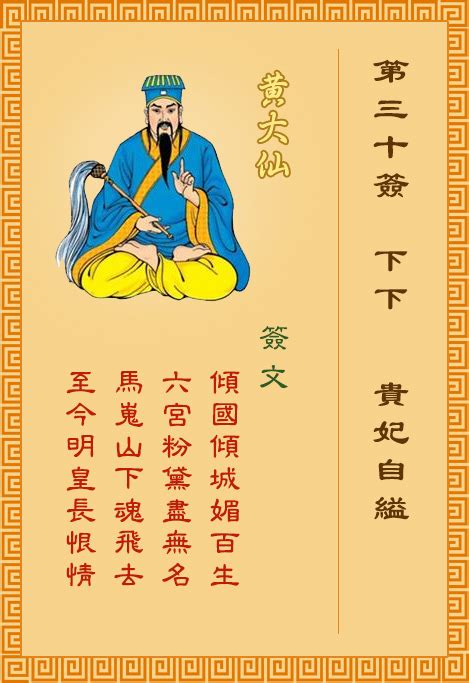 第三十簽 下下 貴妃自縊
黄大仙
簽文
傾國傾城媚百生
六宮粉黛盡無名
馬嵬山下魂飛去
至今明皇長恨情